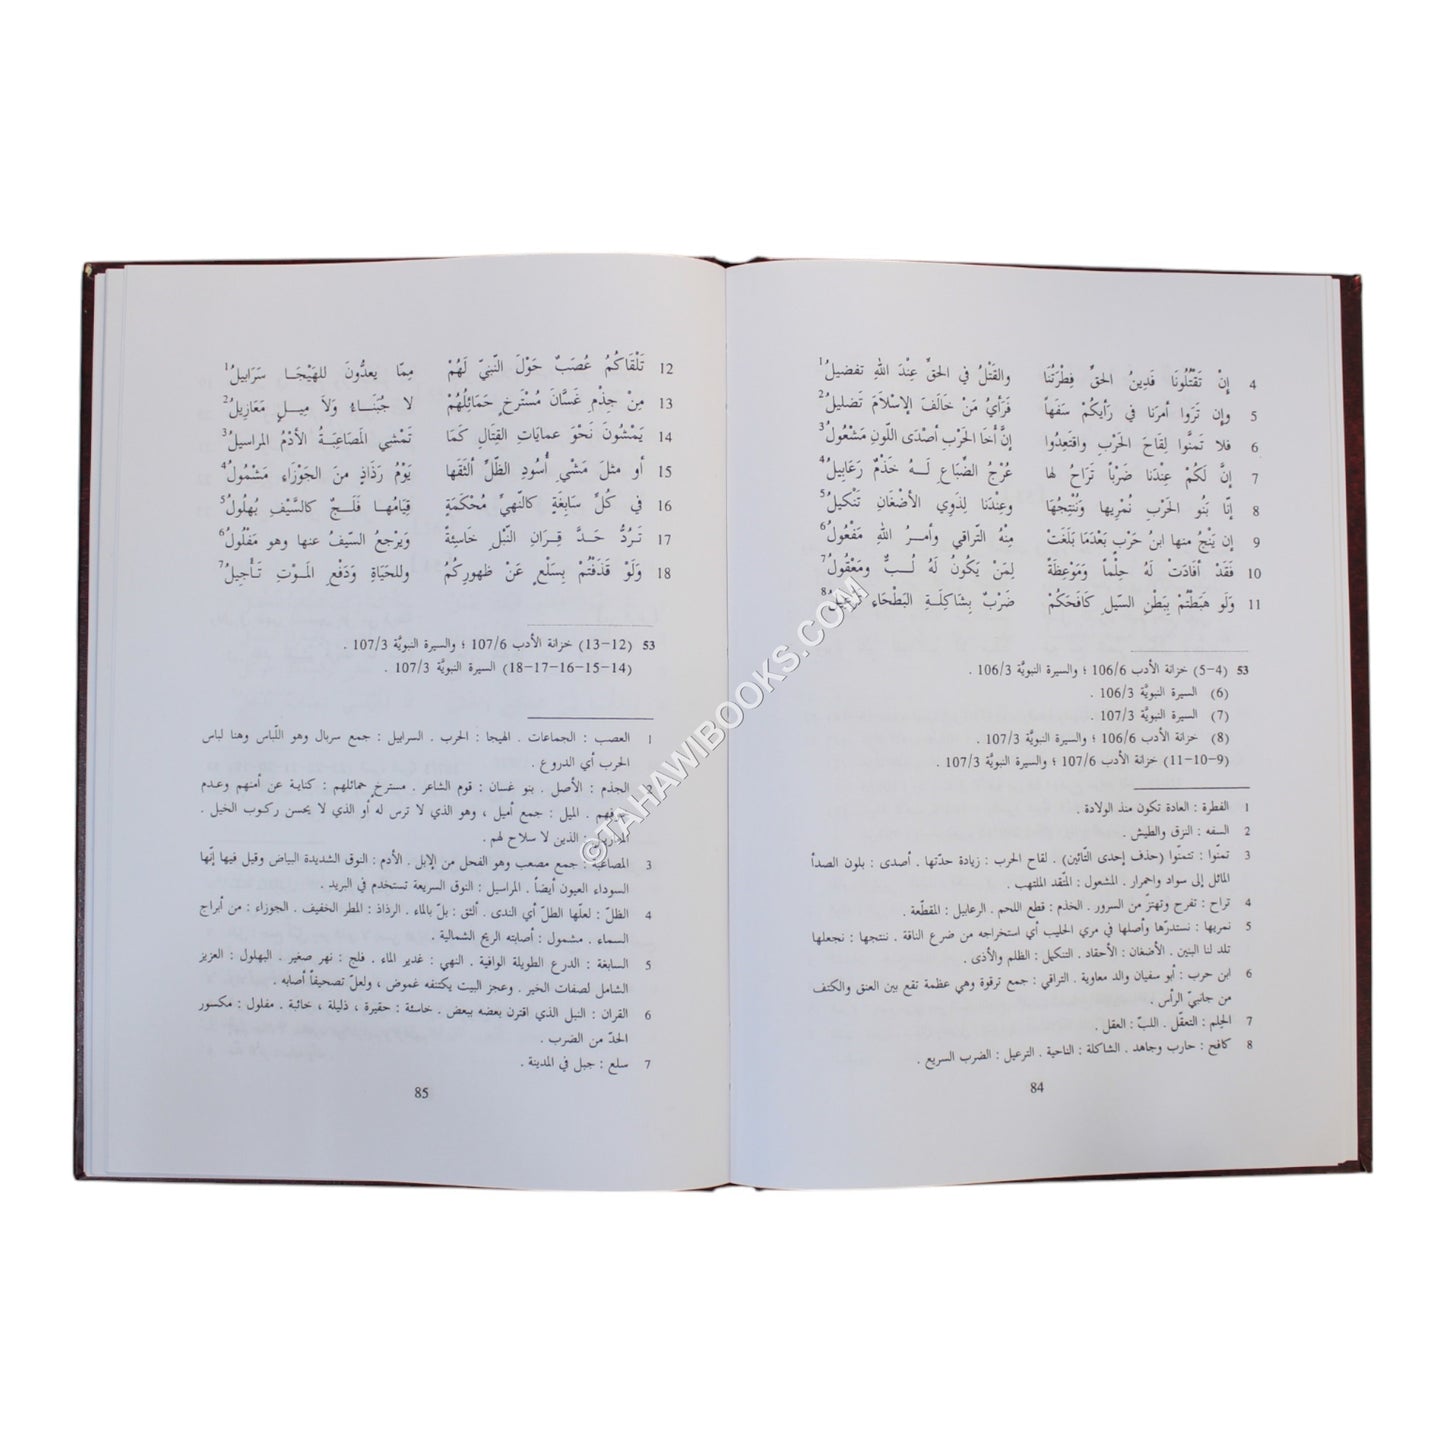 4 إِنْ تَقْتُلُونَا فَدِينُ الحَقِّ فِطْرَتُنَا والقَتْلُ في الحَقِّ عِنْدَ اللهِ تفضيلُ1
5 وإن تَرَوا أمرَنا في رَأيِكُمْ سَفَهاً فَرَأيُ مَنْ خَالَفَ الإسْلاَمَ تَضليلُ2
6 فلا تَمنَّوا لِقاحَ الحَربِ واقتعِدُوا إنَّ أخَا الحَربِ أصْدَى اللّونِ مَشْعُولُ3
7 إنَّ لَكُمْ عِنْدَنا ضَرْباً تَرَاحُ لها عُرْجُ الضِّبَاعِ لَهُ خَذْمٌ رَعَابِيلُ4
8 إنّا بَنُو الحَرْبِ نُمْرِيها وَنُنْتِجُهَا وعِنْدَنا لِذَوِي الأضْغَانِ تَنْكيلُ5
9 إن يَنْجُ منها ابنُ حَرْبٍ بَعْدَمَا بَلَغَتْ مِنْهُ التّراقي وأمرُ اللهِ مَفْعُولُ6
10 فَقَدْ أفادَتْ لَهُ حِلْماً وَمَوعِظَةً لِمَنْ يَكُونُ لَهُ لُبٌّ ومَعْقُولُ7
11 وَلَو هَبَطْتُمْ بِبَطْنِ السّيلِ كَافَحَكمْ ضَرْبٌ بِشَاكِلَةِ البَطْحَاءِ 8
53 (4–5) خزانة الأدب 106/6 ؛ والسيرة النبويَّة 106/3 .
(6) السيرة النبويَّة 106/3 .
(7) السيرة النبويَّة 107/3 .
(8) خزانة الأدب 106/6 ؛ والسيرة النبويَّة 107/3 .
(9–10–11) خزانة الأدب 107/6 ؛ والسيرة النبويَّة 107/3 .
1 الفطرة : العادة تكون منذ الولادة .
2 السفه : النزق والطيش .
3 تمنّوا : تتمنّوا (حذف إحدى التّائين) . لقاح الحرب : زيادة حدّتها . أصدى : بلون الصدأ
المائل إلى سواد واحمرار . المشعول : المتّقد الملتهب .
4 تراح : تفرح وتهتزّ من السرور . الخذم : قطع اللحم . الرعابيل : المقطّعة .
5 نمريها : نستدرّها وأصلها في مري الحليب أي استخراجه من ضرع الناقة . ننتجها : نجعلها
تلد لنا البنين . الأضغان : الأحقاد . التنكيل : الظلم والأذى .
6 ابن حرب : أبو سفيان والد معاوية . التراقي : جمع ترقوة وهي عظمة تقع بين العنق والكتف
من جانبيّ الرأس .
7 الحِلم : التعقّل . اللبّ : العقل .
8 كافح : حارب وجاهد . الشاكلة : الناحية . الترعيل : الضرب السريع .
84
12 تَلْقَاكُمُ عُصَبٌ حَوْلَ النّبيّ لَهُمْ مِمّا يعدُّونَ للهَيْجَا سَرَابيلُ1
13 مِنْ جِذْمِ غَسَّانَ مُسْتَرخٍ حَمَائِلُهُمْ لا جُبَنَاءُ وَلاَ مِيلٍ مَعَازِيلُ2
14 يَمْشُونَ نَحْوَ عمايَاتِ القِتَالِ كَمَا تَمْشي المَصَاعِبَةُ الأدْمُ المراسيلُ3
15 أو مثلَ مَشْيِ أُسُودِ الظّلِّ ألثَقَها يَوْمُ رَذَاذٍ منَ الجَوْزَاءِ مَشْمُولُ4
16 في كُلِّ سَابِغَةٍ كالنّهيِّ مُحْكَمَةٍ قِيَامُها فَلَجٌ كالسَّيْفِ بُهلُولُ5
17 تَرُدُّ حَدَّ قِرَانِ النّبْلِ خَاسِئةً وَيَرْجعُ السّيفُ عنها وهو مَفْلُولُ6
18 وَلَوْ قذَفْتُمْ بِسَلْعٍ عَنْ ظهورِكُمُ وللحَيَاةِ وَدَفْعِ المَوْتِ تَأجِيلُ7
53 (12–13) خزانة الأدب 107/6 ؛ والسيرة النبويَّة 107/3 .
(14–15–16–17–18) السيرة النبويَّة 107/3 .
1 العصب : الجماعات . الهيجا : الحرب . السرابيل : جمع سربال وهو اللّباس وهنا لباس
الحرب أي الدروع .
2 الجذم : الأصل . بنو غسان : قوم الشاعر . مسترخٍ حمائلهم : كناية عن أمنهم وعدم
خوفهم . الميل : جمع أميل ، وهو الذي لا ترس له أو الذي لا يحسن ركوب الخيل .
: الذين لا سلاح لهم .
3 المصاعبة : جمع مصعب وهو الفحل من الإبل . الأدم : النوق الشديدة البياض وقيل فيها إنّها
السوداء العيون أيضاً . المراسيل : النوق السريعة تستخدم في البريد .
4 الظلّ : لعلّها الطلّ أي الندى . ألثق : بلّ بالماء . الرذاذ : المطر الخفيف . الجوزاء : من أبراج
السماء . مشمول : أصابته الريح الشمالية .
5 السابغة : الدرع الطويلة الوافية . النهي : غدير الماء . فلج : نهر صغير . البهلول : العزيز
الشامل لصفات الخير . وعجز البيت يكتنفه غموض ، ولعلّ تصحيفاً أصابه .
6 القران : النبل الذي اقترن بعضه ببعض . خاسئة : حقيرة ، ذليلة ، خائبة . مفلول : مكسور
الحدّ من الضرب .
7 سلع : جبل في المدينة .
85
©TAHAWIBOOKS.COM